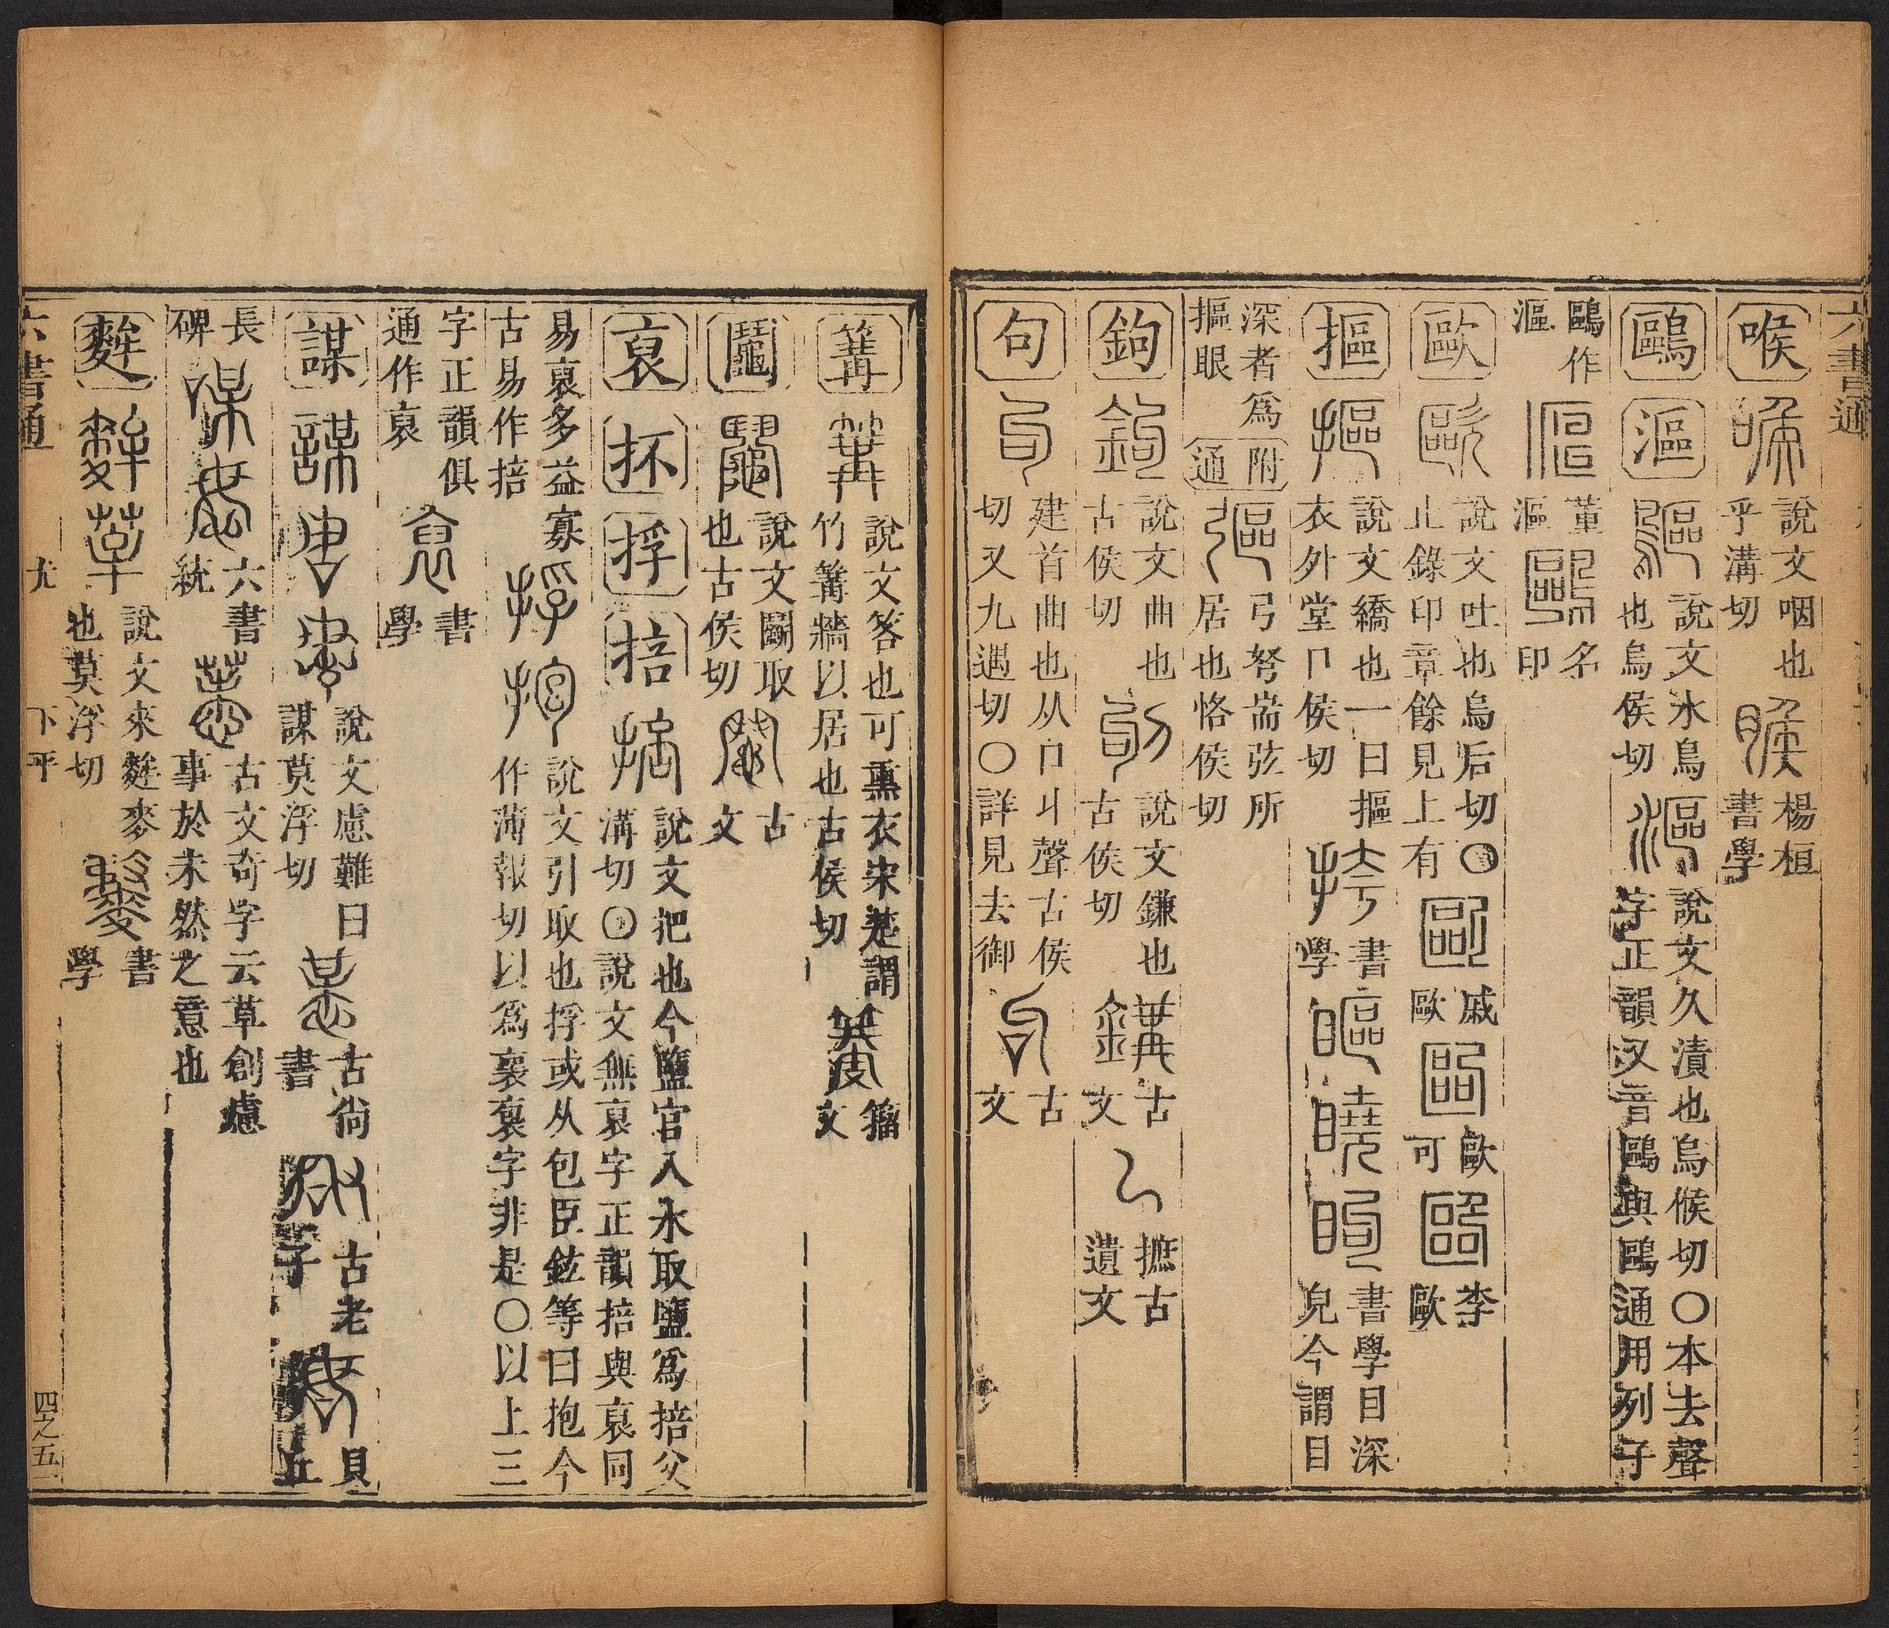 六書通
喉 說文咽也乎溝切 楊桓書學
鷗 漚 說文水鳥也烏侯切 說文久漬也烏候切〇本去聲字正韻又音鷗與鷗通用列子
鷗作漚 董名漚印
歐 說文吐也烏后切〇止錄印章餘見上有 戚歐 歐可 李歐
摳 說文繑也一曰摳衣外堂ㄇ侯切 書學 書學目深皃今謂目
深者爲摳眼 附通 弓弩耑弦所居也恪侯切
鉤 說文曲也古侯切 說文鎌也古侯切 古文 摭古遺文
句 建首曲也从口丩聲古侯切又九遇切〇詳見去御 古文
篝 說文笿也可熏衣宋楚謂竹篝牆以居也古侯切 籀文
鬮 說文鬭取也古侯切 古文
裒 抔 捊 掊 說文把也今鹽官入水取鹽爲掊父溝切〇說文無裒字正韻掊與裒同
易裒多益寡古易作掊 說文引取也捊或从包臣鉉等曰抱今作薄報切以爲褱袌字非是〇以上三
字正韻俱通作裒 書學
謀 說文慮難曰謀莫浮切 古尚書 古老子 貝丘
長碑 六書統 古文奇字云草創慮事於未然之意也
麰 說文來麰麥也莫浮切 書學
六書通 尤 下平 四之五